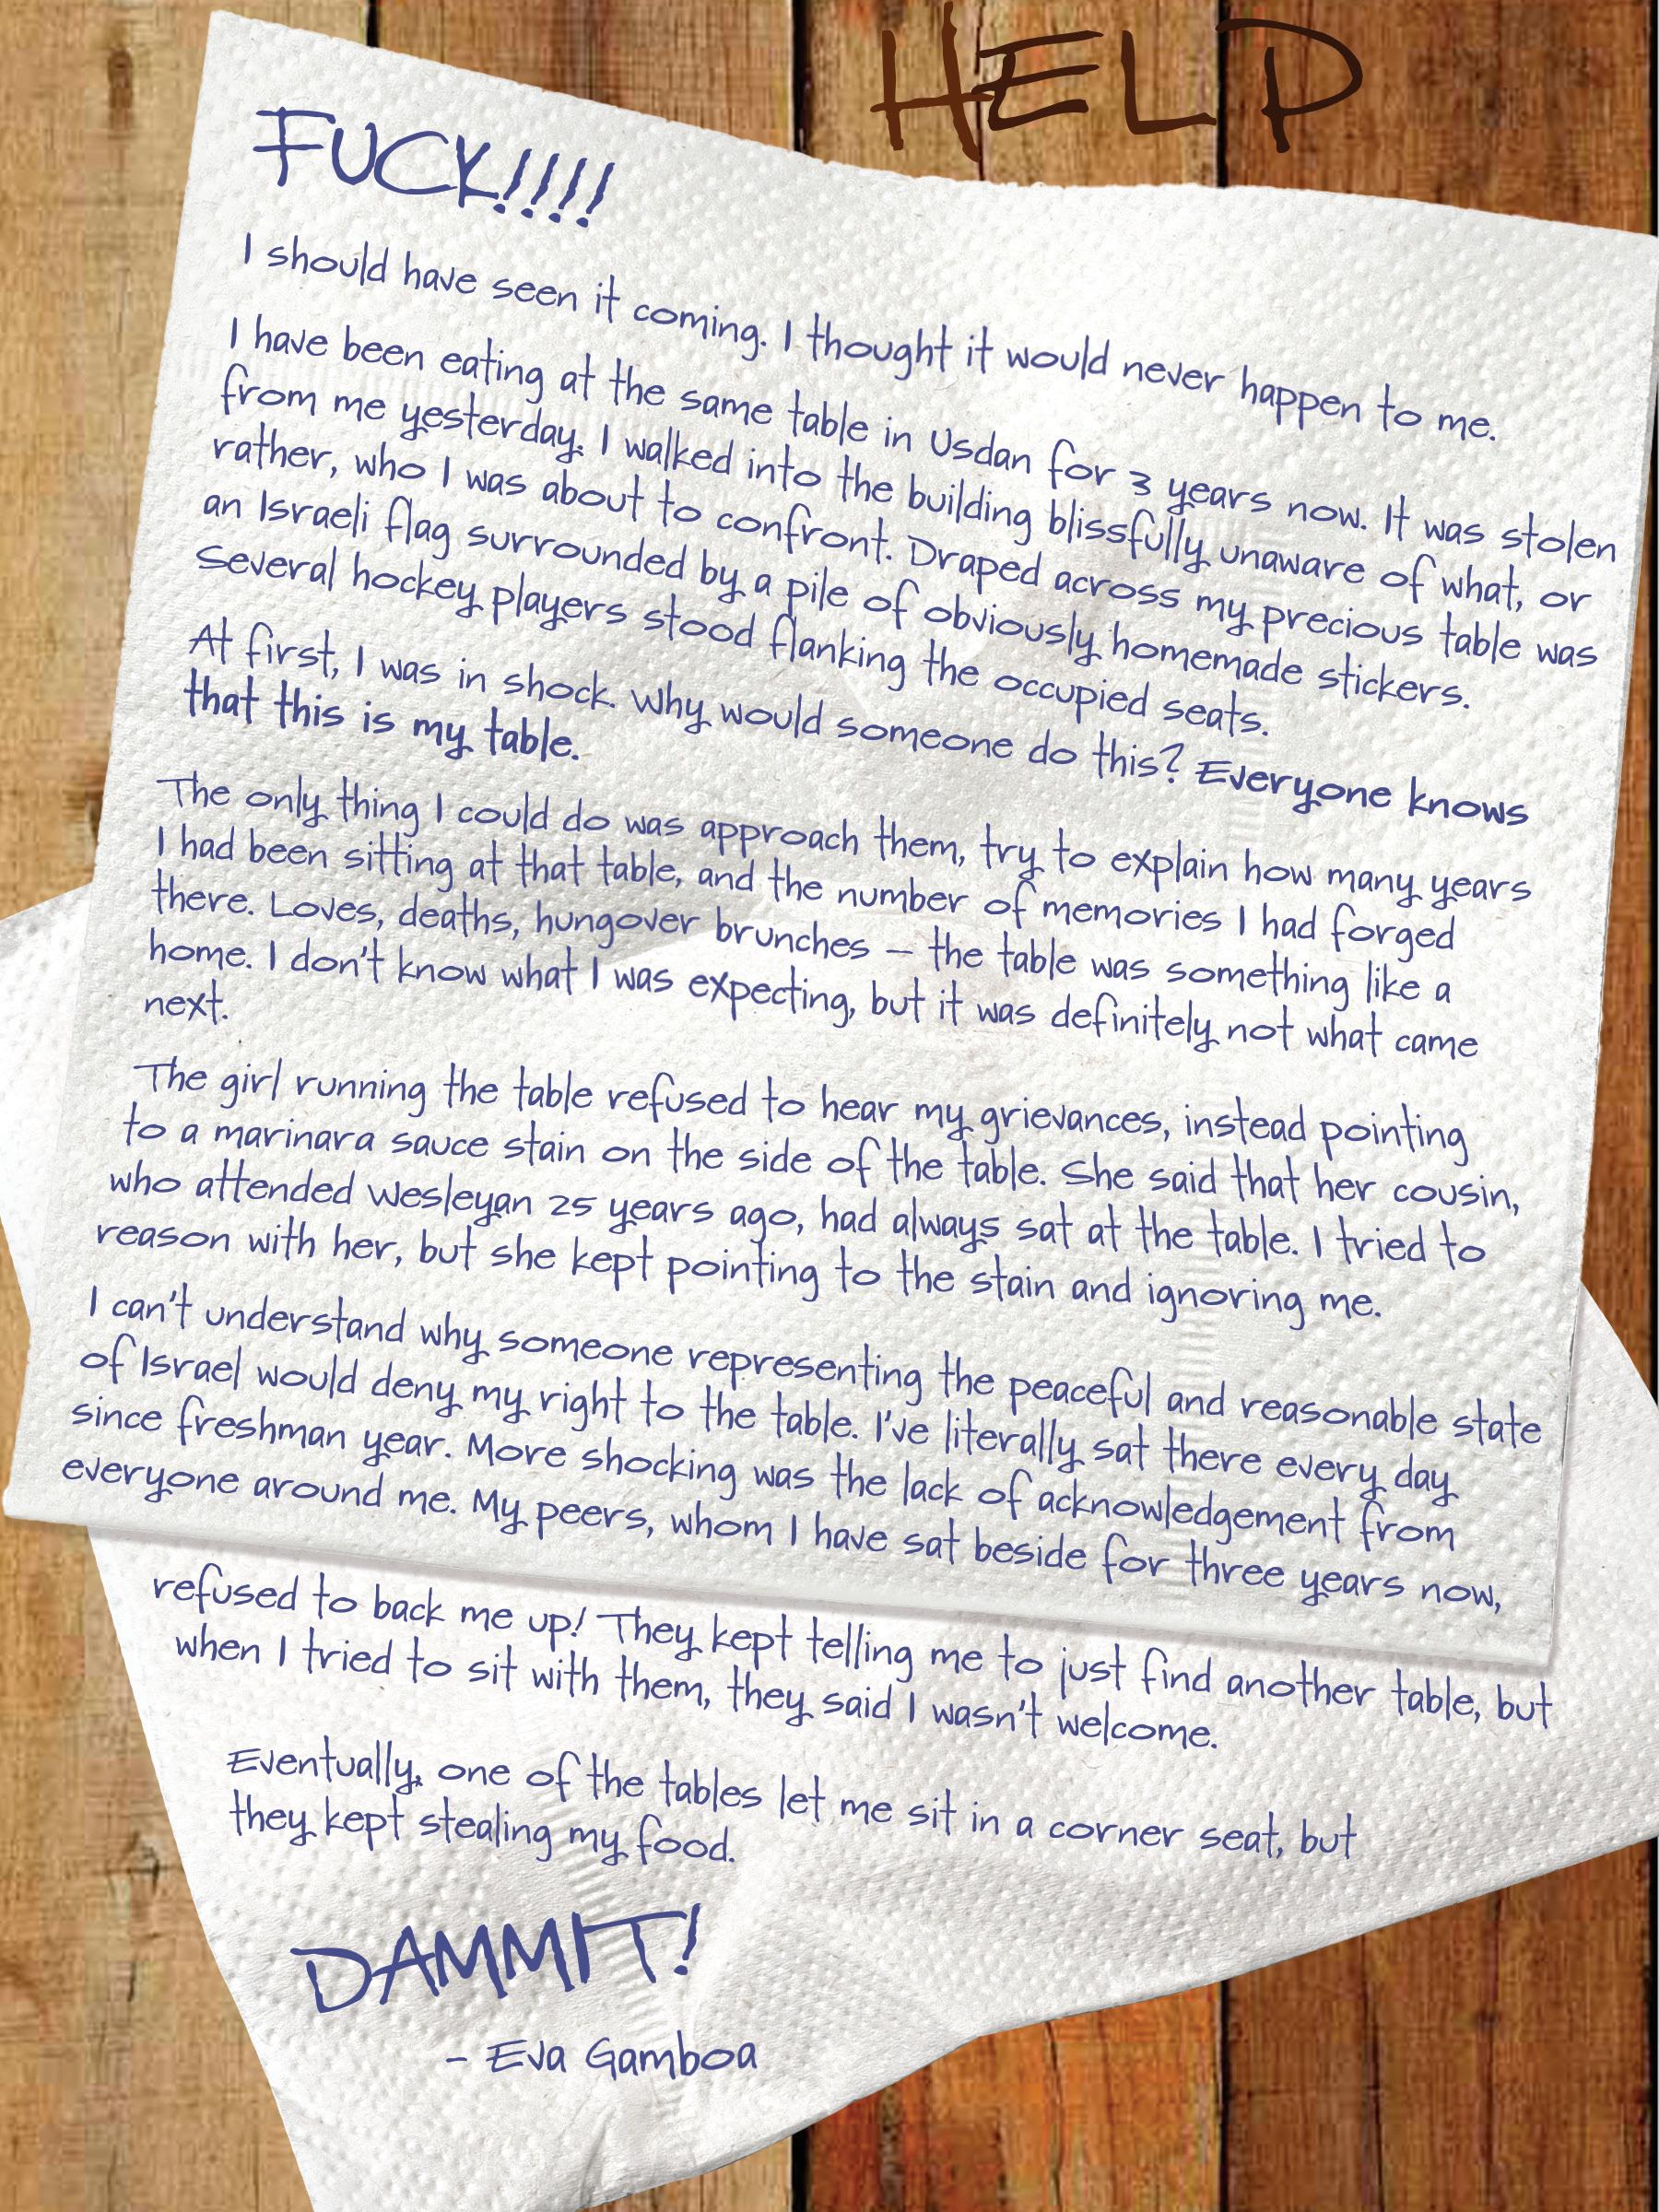 HELP
FUCK!!!!
I should have seen it coming. I thought it would never happen to me.
I have been eating at the same table in Usdan for 3 years now. It was stolen
from me yesterday. I walked into the building blissfully unaware of what, or
rather, who I was about to confront. Draped across my precious table was
an Israeli flag surrounded by a pile of obviously homemade stickers.
Several hockey players stood flanking the occupied seats.
At first, I was in shock. Why would someone do this? Everyone knows
that this is my table.
The only thing I could do was approach them, try to explain how many years
I had been sitting at that table, and the number of memories I had forged
there. Loves, deaths, hungover brunches – the table was something like a
home. I don't know what I was expecting, but it was definitely not what came
next.
The girl running the table refused to hear my grievances, instead pointing
to a marinara sauce stain on the side of the table. She said that her cousin,
who attended Wesleyan 25 years ago, had always sat at the table. I tried to
reason with her, but she kept pointing to the stain and ignoring me.
I can't understand why someone representing the peaceful and reasonable state
of Israel would deny my right to the table. I've literally sat there every day
since freshman year. More shocking was the lack of acknowledgement from
everyone around me. My peers, whom I have sat beside for three years now,
refused to back me up! They kept telling me to just find another table, but
when I tried to sit with them, they said I wasn't welcome.
Eventually, one of the tables let me sit in a corner seat, but
they kept stealing my food.
DAMMIT!
- Eva Gamboa